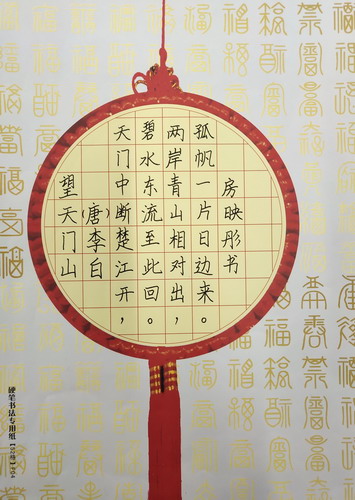 望天门山
(唐)李白
天门中断楚江开，
碧水东流至此回。
两岸青山相对出，
孤帆一片日边来。
房映彤书
硬笔书法专用纸